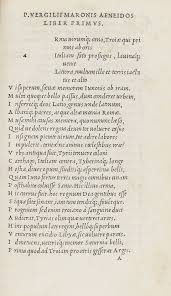 P. VERGILII MARONIS AENEIDOS
LIBER PRIMVS.
Rma uirumq; cano, Troiæ qui pri
mus ab oris
Italiam fato profugus, Lauinaq;
uenit
Littora, multum ille et terris iacta
tus et alto
V i superum, sæuæ memorem Iunonis ob iram,
M ulta quoq; et bello passus, dum conderet urbem,
I nferretq; deos Latio, genus unde Latinum,
A lbaniq; patres, atq; altæ mœnia Romæ.
M usa mihi causas memora, quo numine læso,
Q uid ue dolens regina deum tot uoluere casus
I nsignem pietate uirum, tot adire labores
I mpulerit. tantæ ne animis cœlestibus iræ?
V rbs antiqua fuit, Tyrii tenuere coloni
C arthago, Italiam contra, Tyberinaq; longe
O stia, diues opum, studiisq; asperrima belli,
Q uam Iuno fertur terris magis omnibus unam
P osthabita coluisse Samo. hic illius arma,
H ic currus fuit, hoc regnum dea gentibus esse,
S i qua fata sinant, iam tum tenditq; fouetq;.
P rogeniem sed enim Troiano a sanguine duci
A udierat, Tyrias olim quæ uerteret arces.
H inc populum late regem, belloq; superbum
V enturum excidio Libyæ, sic uoluere Parcas.
I d metuens, ueterisq; memor Saturnia belli,
P rima quod ad Troiam pro caris gesserat Argis
A